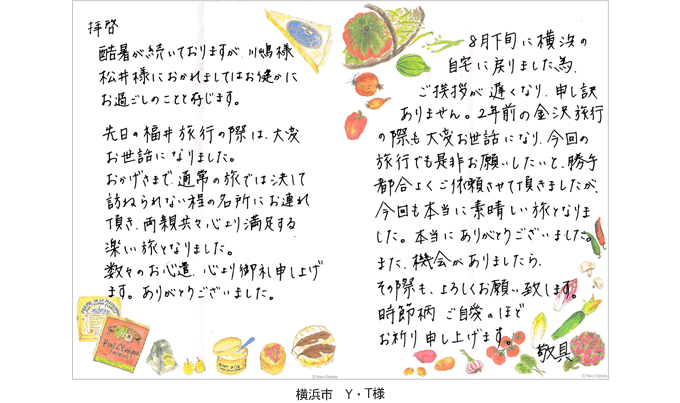 拝啓
酷暑が続いておりますが、川嶋様
松井様におかれましてはお健かに
お過ごしのことと存じます。
先日の福井旅行の際は、大変
お世話になりました。
おかげさまで、通常の旅では決して
訪ねられない程の名所にお連れ
頂き、両親共々心より満足する
楽しい旅となりました。
数々のお心遣、心より御礼申し上げ
ます。ありがとうございました。
8月下旬に横浜の
自宅に戻りました為、
ご挨拶が遅くなり、申し訳
ありません。2年前の金沢旅行
の際も大変お世話になり、今回の
旅行でも是非お願いしたいと、勝手
都合よくご依頼させて頂きましたが、
今回も本当に素晴しい旅となりま
した。本当にありがとうございました。
また、機会がありましたら、
その際も、よろしくお願い致します。
時節柄 ご自愛のほど
お祈り申し上げます。
敬具
横浜市　Y・T様